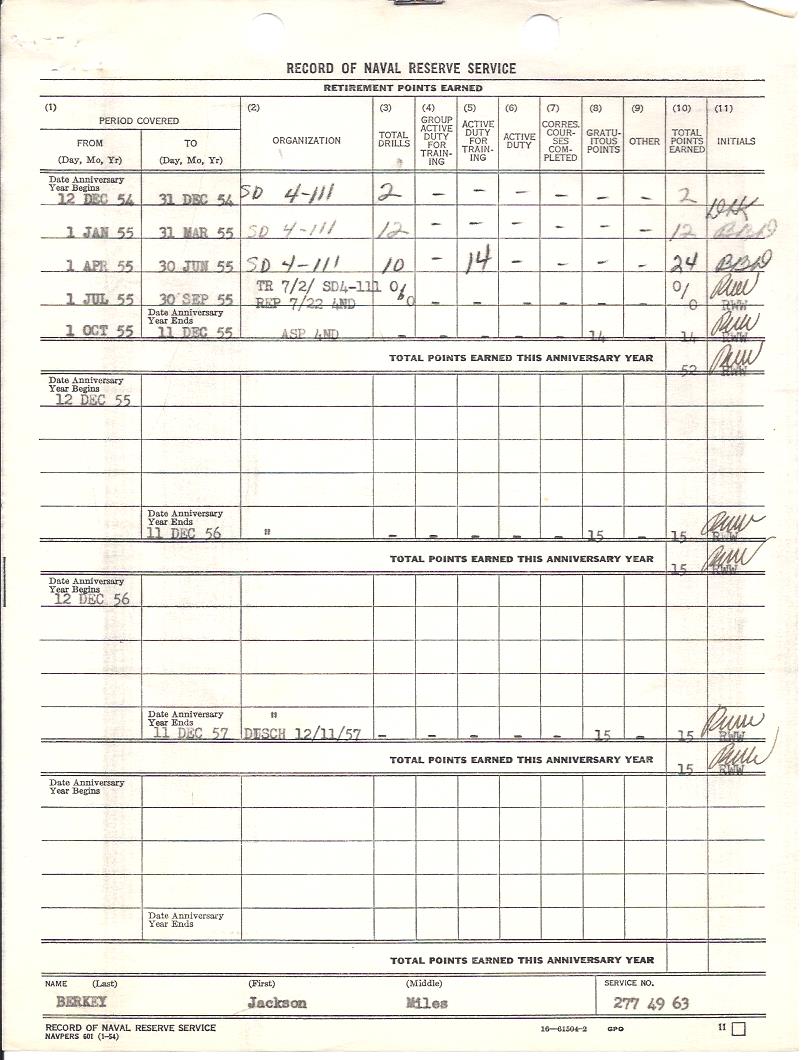 RECORD OF NAVAL RESERVE SERVICE
RETIREMENT POINTS EARNED
(1) (2) (3) (4) (5) (6) (7) (8) (9) (10) (11)
PERIOD COVERED
FROM (Day, Mo, Yr) TO (Day, Mo, Yr) ORGANIZATION TOTAL DRILLS GROUP ACTIVE DUTY FOR TRAIN-ING ACTIVE DUTY FOR TRAIN-ING ACTIVE DUTY CORRES. COUR-SES COM-PLETED GRATU-ITOUS POINTS OTHER TOTAL POINTS EARNED INITIALS
Date Anniversary
Year Begins
12 DEC 54 31 DEC 54 SD 4-111 2 - - - - - - 2 DHK
1 JAN 55 31 MAR 55 SD 4-111 12 - - - - - - 12 BBD
1 APR 55 30 JUN 55 SD 4-111 10 - 14 - - - - 24 BBD
TR 7/2/ SD4-111 0/ 0/
1 JUL 55 30 SEP 55 REP 7/22 4ND 0 - - - - - - 0 RWW
Date Anniversary
Year Ends
1 OCT 55 11 DEC 55 ASP 4ND - - - - - 14 - 14 RWW
TOTAL POINTS EARNED THIS ANNIVERSARY YEAR 52 RWW
Date Anniversary
Year Begins
12 DEC 55
Date Anniversary
Year Ends
11 DEC 56 " - - - - - 15 - 15 RWW
TOTAL POINTS EARNED THIS ANNIVERSARY YEAR 15 RWW
Date Anniversary
Year Begins
12 DEC 56
Date Anniversary
Year Ends "
11 DEC 57 DISCH 12/11/57 - - - - - 15 - 15 RWW
TOTAL POINTS EARNED THIS ANNIVERSARY YEAR 15 RWW
Date Anniversary
Year Begins
Date Anniversary
Year Ends
TOTAL POINTS EARNED THIS ANNIVERSARY YEAR
NAME (Last) (First) (Middle) SERVICE NO.
BERKEY Jackson Miles 277 49 63
RECORD OF NAVAL RESERVE SERVICE 16-61504-2 GPO 11
NAVPERS 601 (1-54)